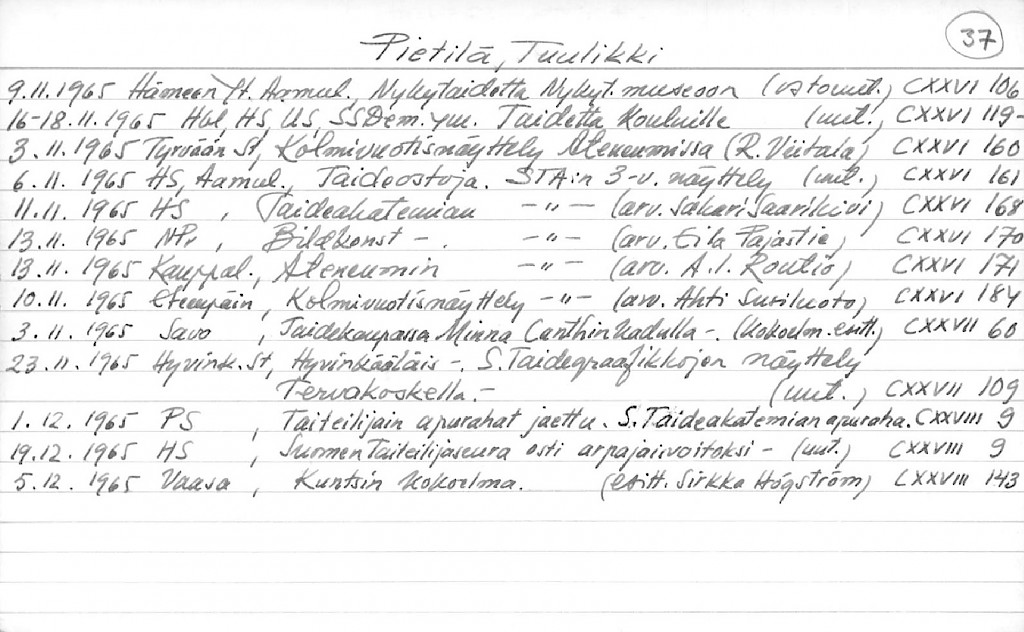 37
Pietilä, Tuulikki
9.11.1965 Hämeen St. Aamul., Nykytaidetta Nykyt. museoon (ostouut.) CXXVI 106
16-18.11.1965 Hbl, HS, US, SSDem. ym. Taidetta kouluille (uut., CXXVI 119-
3.11.1965 Tyrvään St, Kolmivuotisnäyttely Ateneumissa (R. Viitala) CXXVI 160
6.11.1965 HS, Aamul., Taideostoja. STA:n 3-v. näyttely (uut.) CXXVI 161
11.11.1965 HS, Taideakatemian -"- (arv. Sakari Saarikivi) CXXVI 168
13.11.1965 NPr, Bildkonst -. -"- (arv. Eila Pajastie) CXXVI 170
13.11.1965 Kauppal., Ateneumin -"- (arv. A.I. Routio) CXXVI 171
10.11.1965 Eteenpäin, Kolmivuotisnäyttely -"- (arv. Ahti Susiluoto) CXXVI 184
3.11.1965 Savo, Taidekaupassa Minna Canthin kadulla -. (kokoelm. esitt.) CXXVII 60
23.11.1965 Hyvink. St, Hyvinkääläis -. S. Taidegraafikkojen näyttely
Tervakoskella. - (uut.) CXXVII 109
1.12.1965 PS, Taiteilijain apurahat jaettu. S. Taideakatemian apuraha. CXXVIII 9
19.12.1965 HS, Suomen Taiteilijaseura osti arpajaisvoitoksi - (uut.) CXXVIII 9
5.12.1965 Vaasa, Kuntsin kokoelma. (esitt. Sirkka Högström) CXXVIII 143